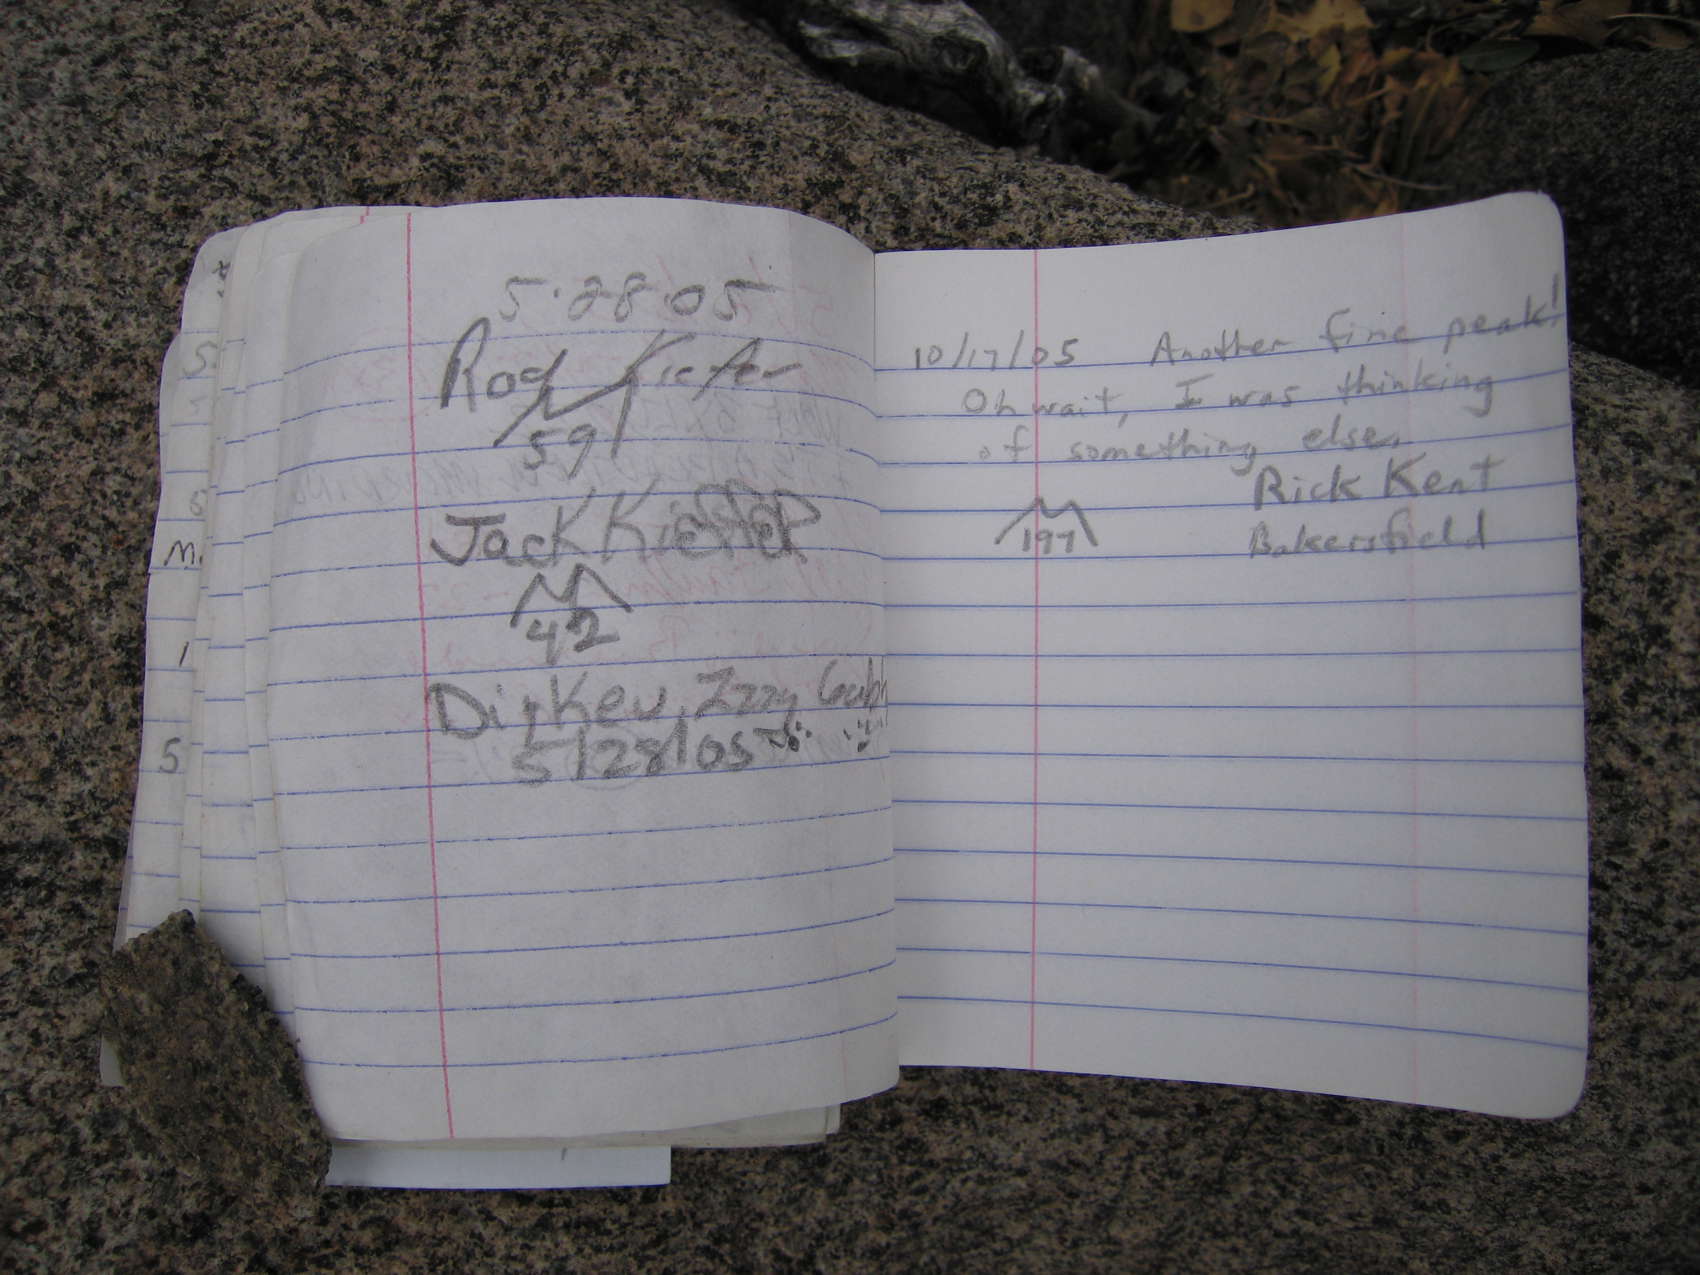 5·28·05
Rod Kiefer
59
Jack Kieffer
42
Izzy
5/28/05
10/17/05 Another fine peak!
Oh wait, I was thinking
of something else.
Rick Kent
197
Bakersfield
S.
M.
1
5